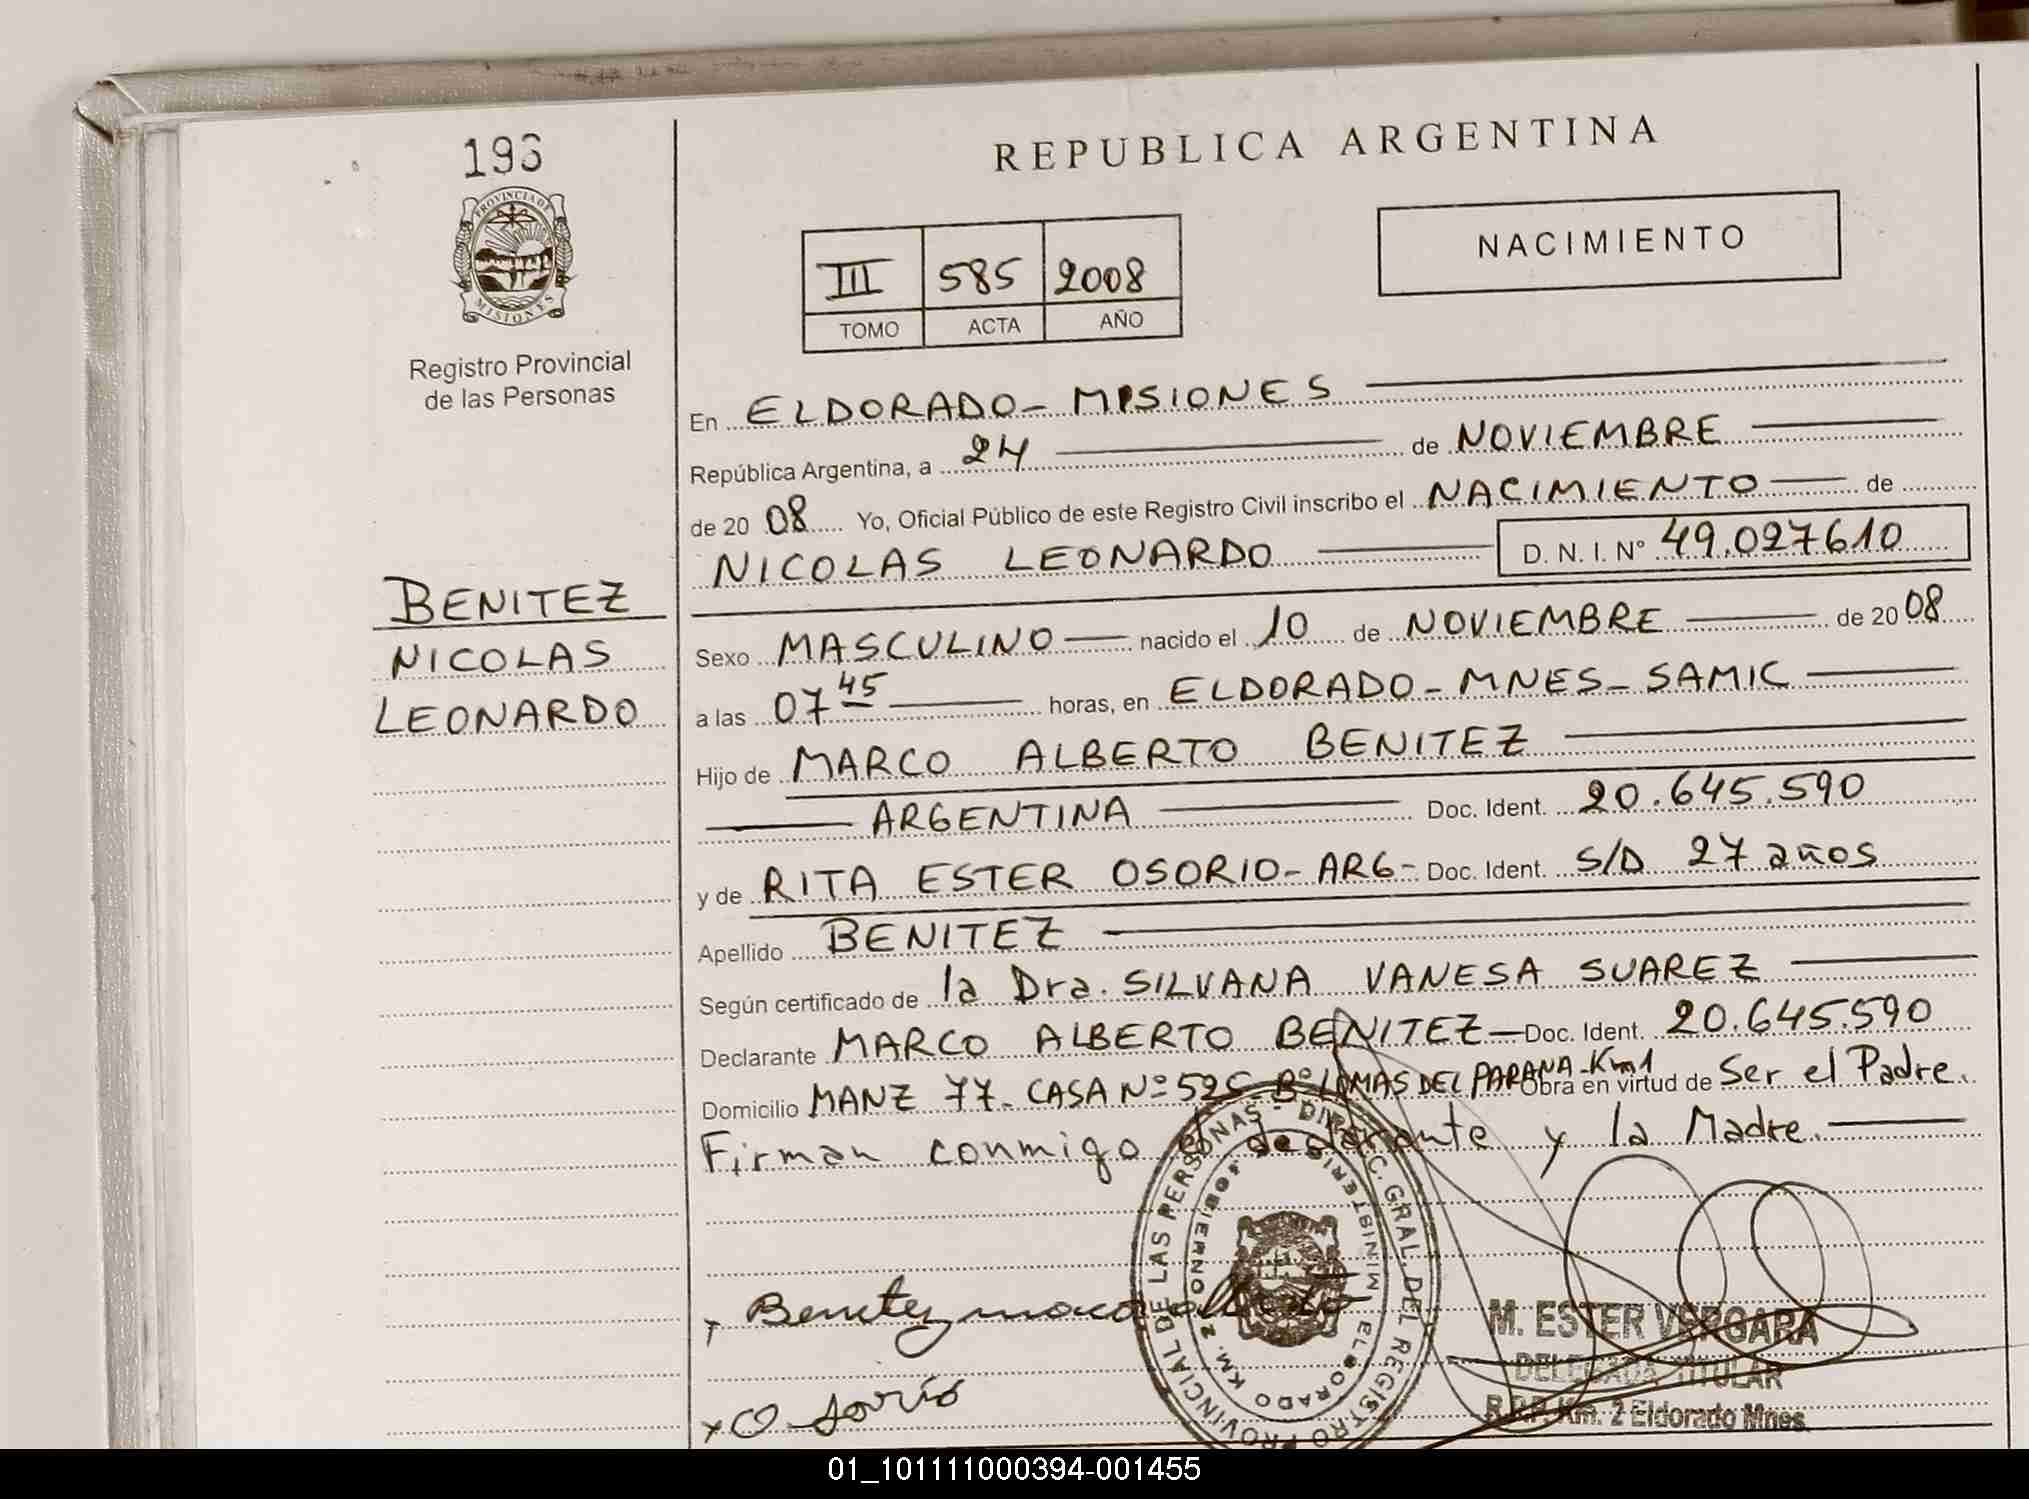 196
PROVINCIA DE
MISIONES
Registro Provincial
de las Personas
BENITEZ
NICOLAS
LEONARDO
REPUBLICA ARGENTINA
III 585 2008
TOMO ACTA AÑO
NACIMIENTO
En ELDORADO - MISIONES
República Argentina, a 24 de NOVIEMBRE
de 2008 Yo, Oficial Público de este Registro Civil inscribo el NACIMIENTO de
NICOLAS LEONARDO D. N. I. Nº 49.027610
Sexo MASCULINO nacido el 10 de NOVIEMBRE de 2008
a las 07 45 horas, en ELDORADO - MNES - SAMIC
Hijo de MARCO ALBERTO BENITEZ
ARGENTINA Doc. Ident. 20.645.590
y de RITA ESTER OSORIO - ARG - Doc. Ident. S/D 27 años
Apellido BENITEZ
Según certificado de la Dra. SILVANA VANESA SUAREZ
Declarante MARCO ALBERTO BENITEZ - Doc. Ident. 20.645.590
Domicilio MANZ 77 - CASA Nº 525 - Bº LOMAS DEL PARANA - Km1 Obra en virtud de Ser el Padre.
Firman conmigo el declarante y la Madre.
REGISTRO PROVINCIAL DE LAS PERSONAS - DIREC. GRAL. DEL
MINISTERIO GOBIERNO
KM. 2 ELDORADO
Benitez marco alberto
Osorio
M. ESTER VERGARA
DELEGADA TITULAR
R.P.P. Km. 2 Eldorado Mnes.
01_101111000394-001455